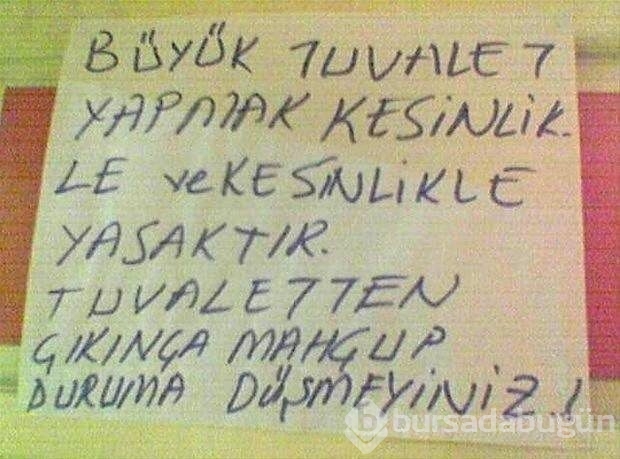 BÜYÜK TUVALET
YAPMAK KESİNLİK.
LE ve KESİNLİKLE
YASAKTIR.
TUVALETTEN
ÇIKINÇA MAHÇUP
DURUMA DÜŞMEYİNİZ!
bursadabugün